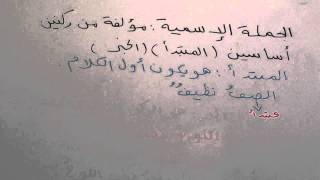 الجملة الإسمية : مؤلفة من ركنين
أساسين (المبتدأ) (الخبر)
المبتدأ : هو يكون أول الكلام
الصفُ نظيفٌ
مبتدأ